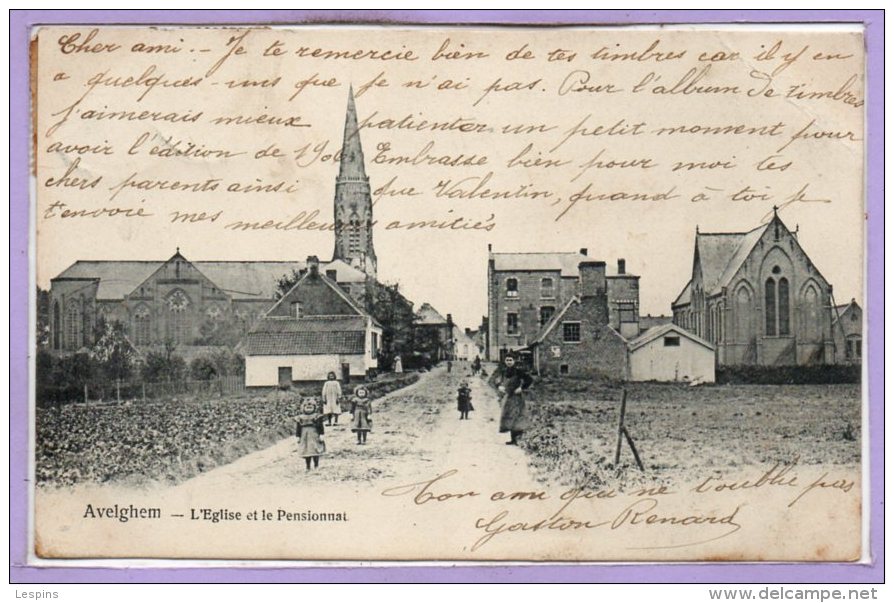 Cher ami. - Je te remercie bien de tes timbres car il y en
a quelques-uns que je n'ai pas. Pour l'album de timbres
j'aimerais mieux patienter un petit moment pour
avoir l'édition de 1906 Embrasse bien pour moi tes
chers parents ainsi que Valentin, quand à toi je
t'envoie mes meilleures amitiés
Ton ami qui ne t'oublie pas
Gaston Renard
Avelghem - L'Eglise et le Pensionnat
Lespins
www.delcampe.net